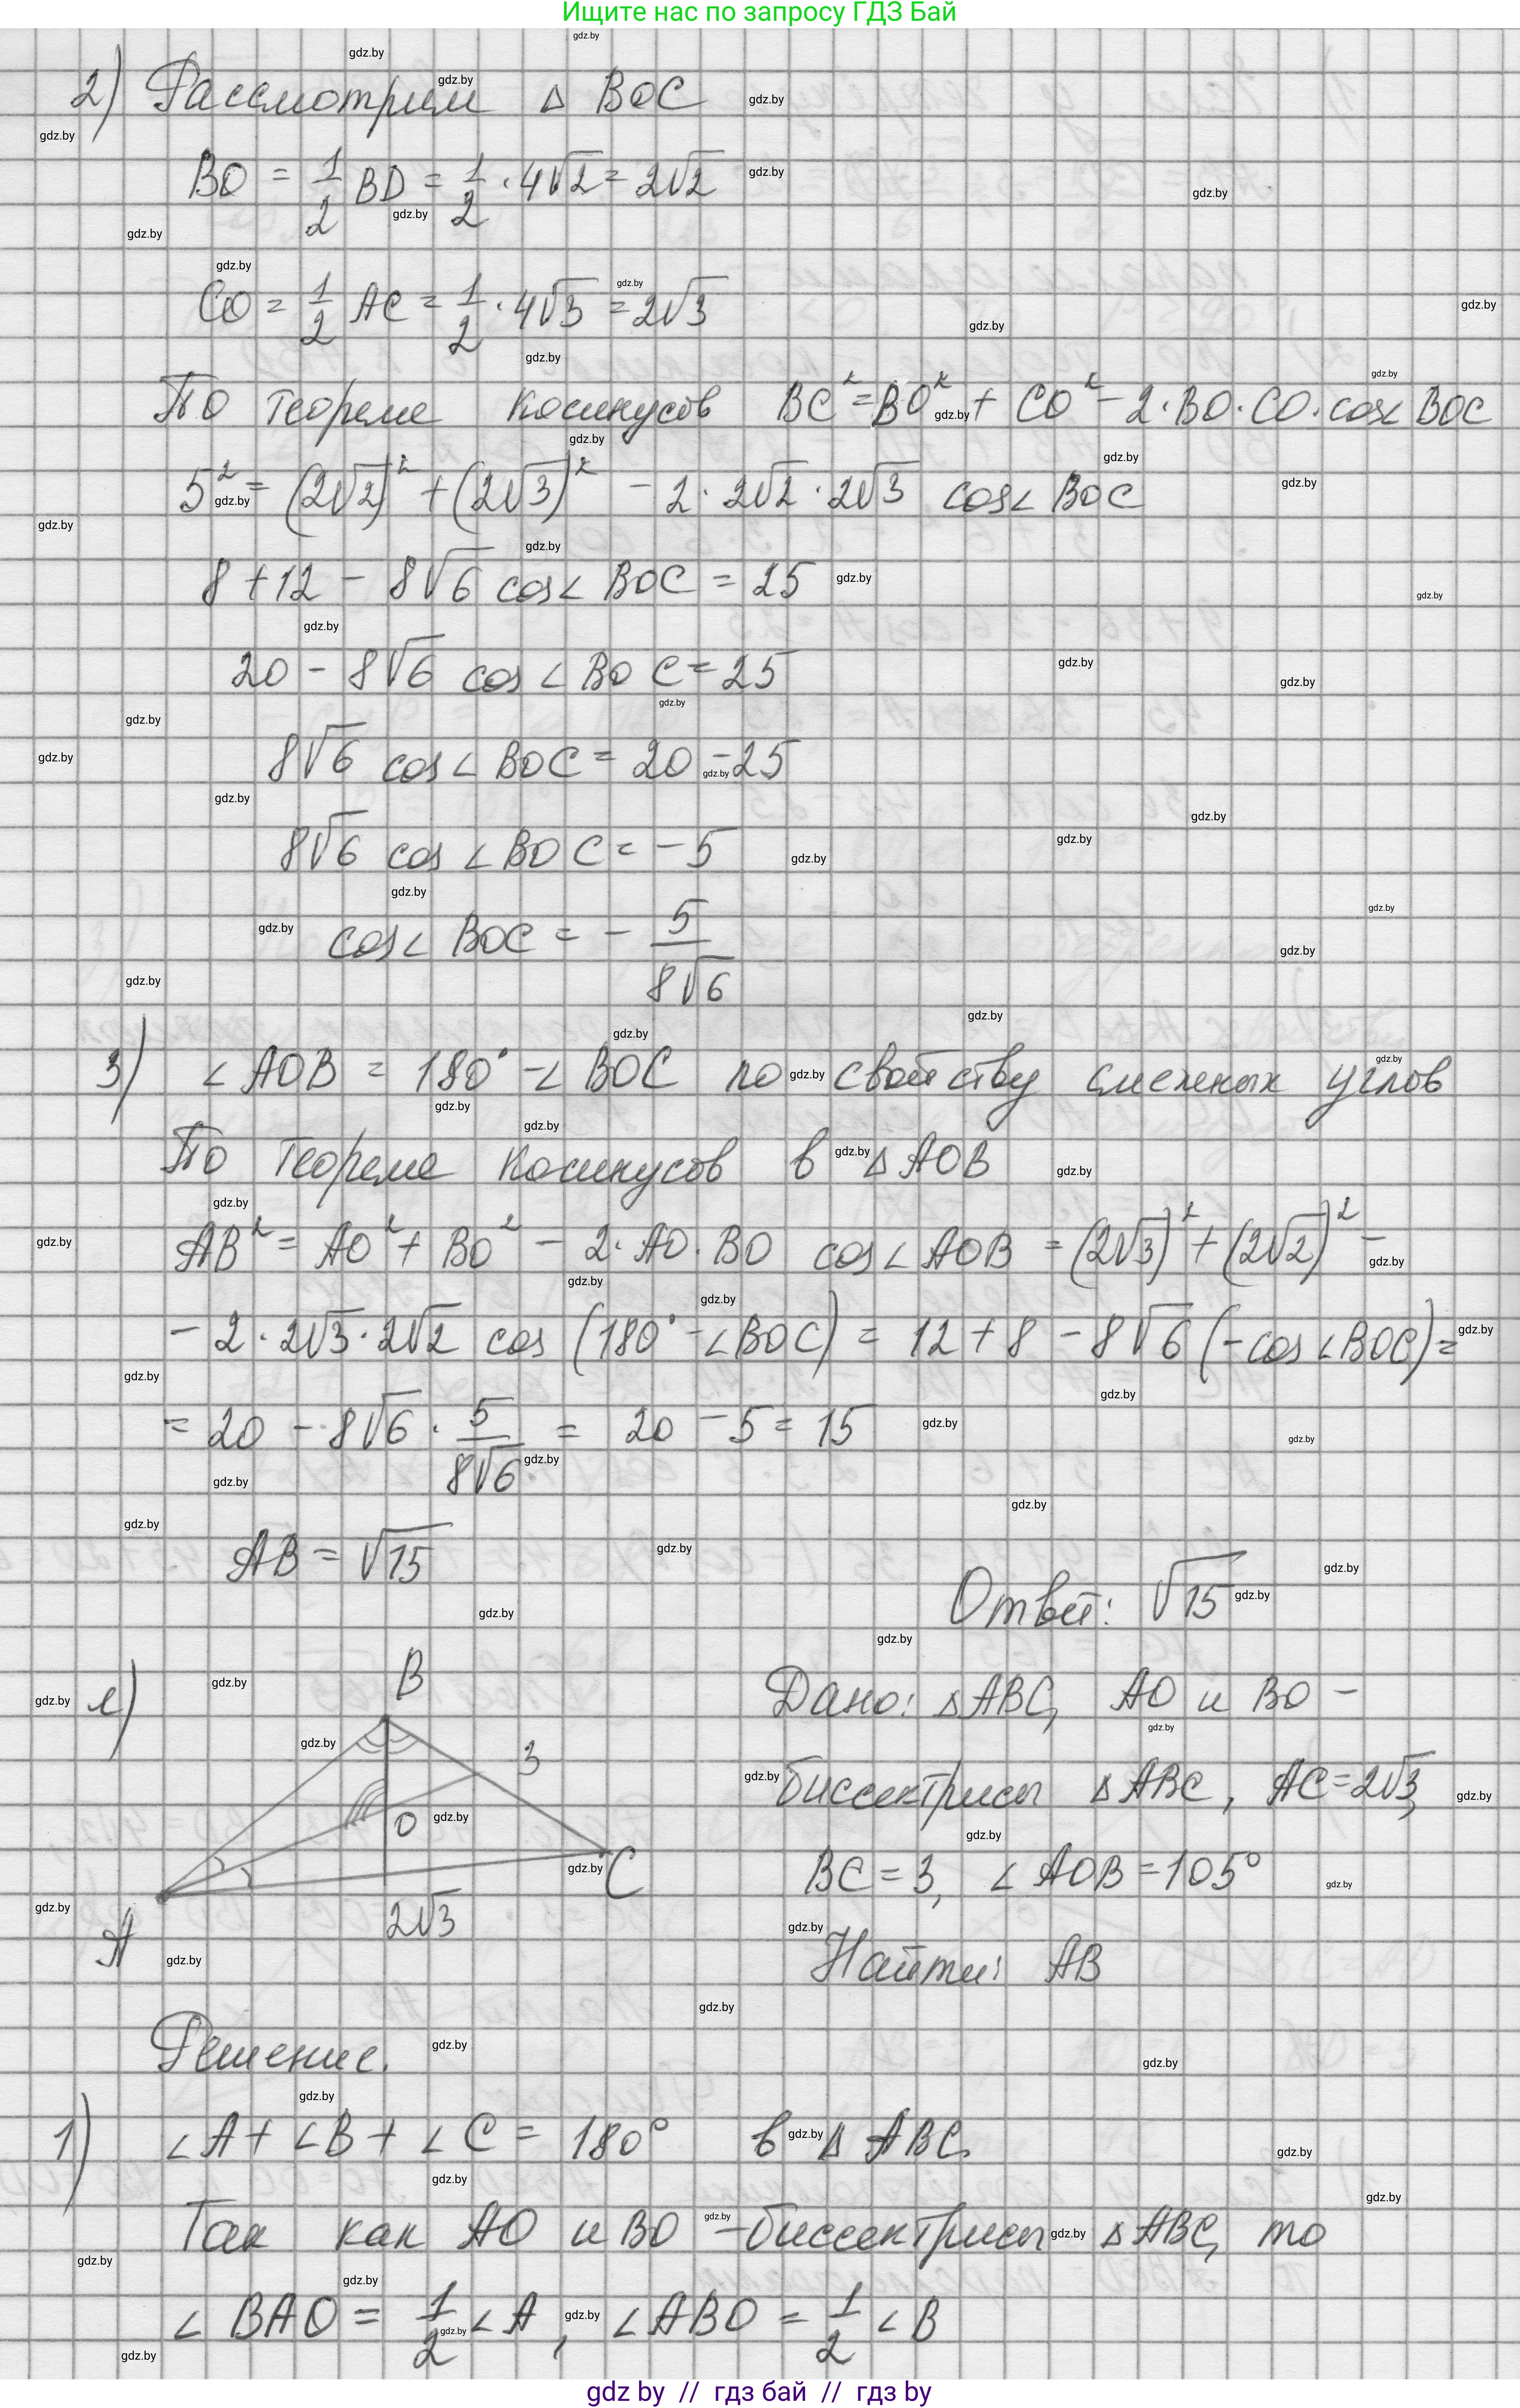 Ищите нас по запросу ГДЗ Бай
2) Рассмотрим △ BOC
BO = 1/2 BD = 1/2 · 4√2 = 2√2
CO = 1/2 AC = 1/2 · 4√3 = 2√3
По теореме косинусов BC² = BO² + CO² - 2·BO·CO·cos∠BOC
5² = (2√2)² + (2√3)² - 2·2√2·2√3 cos∠BOC
8 + 12 - 8√6 cos∠BOC = 25
20 - 8√6 cos∠BOC = 25
8√6 cos∠BOC = 20 - 25
8√6 cos∠BOC = -5
cos∠BOC = - 5/8√6
3) ∠AOB = 180° - ∠BOC по свойству смежных углов
По теореме косинусов в △AOB
AB² = AO² + BO² - 2·AO·BO cos∠AOB = (2√3)² + (2√2)² -
- 2·2√3·2√2 cos(180° - ∠BOC) = 12 + 8 - 8√6 (-cos∠BOC) =
= 20 - 8√6 · 5/8√6 = 20 - 5 = 15
AB = √15
Ответ: √15
е)
B
3
O
C
A
2√3
Дано: △ABC, AO и BO -
биссектрисы △ABC, AC = 2√3,
BC = 3, ∠AOB = 105°
Найти: AB
Решение.
1) ∠A + ∠B + ∠C = 180° в △ABC.
Так как AO и BO - биссектрисы △ABC, то
∠BAO = 1/2 ∠A, ∠ABO = 1/2 ∠B
gdz by // гдз бай // gdz by